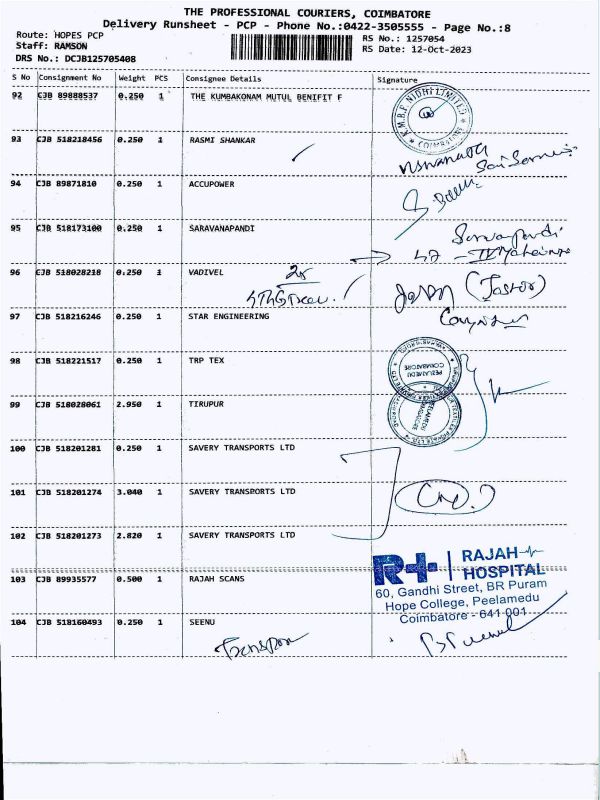 THE PROFESSIONAL COURIERS, COIMBATORE
Delivery Runsheet - PCP - Phone No.:0422-3505555 - Page No.:8
Route: HOPES PCP
Staff: RAMSON
DRS No.: DCJB125705408
RS No.: 1257054
RS Date: 12-Oct-2023
S No Consignment No Weight PCS Consignee Details Signature
92 CJB 89888537 0.250 1 THE KUMBAKONAM MUTUL BENIFIT F
K.M.B.F. NIDHI LIMITED
COIMBATORE
93 CJB 518218456 0.250 1 RASMI SHANKAR
94 CJB 89871810 0.250 1 ACCUPOWER
95 CJB 518173100 0.250 1 SARAVANAPANDI
96 CJB 518028218 0.250 1 VADIVEL
97 CJB 518216246 0.250 1 STAR ENGINEERING
98 CJB 518221517 0.250 1 TRP TEX
PEELAMEDU
COIMBATORE
99 CJB 518028061 2.950 1 TIRUPUR
100 CJB 518201281 0.250 1 SAVERY TRANSPORTS LTD
101 CJB 518201274 3.040 1 SAVERY TRANSPORTS LTD
102 CJB 518201273 2.820 1 SAVERY TRANSPORTS LTD
R+ RAJAH
HOSPITAL
103 CJB 89935577 0.500 1 RAJAH SCANS
60, Gandhi Street, BR Puram
Hope College, Peelamedu
Coimbatore - 641 001
104 CJB 518160493 0.250 1 SEENU